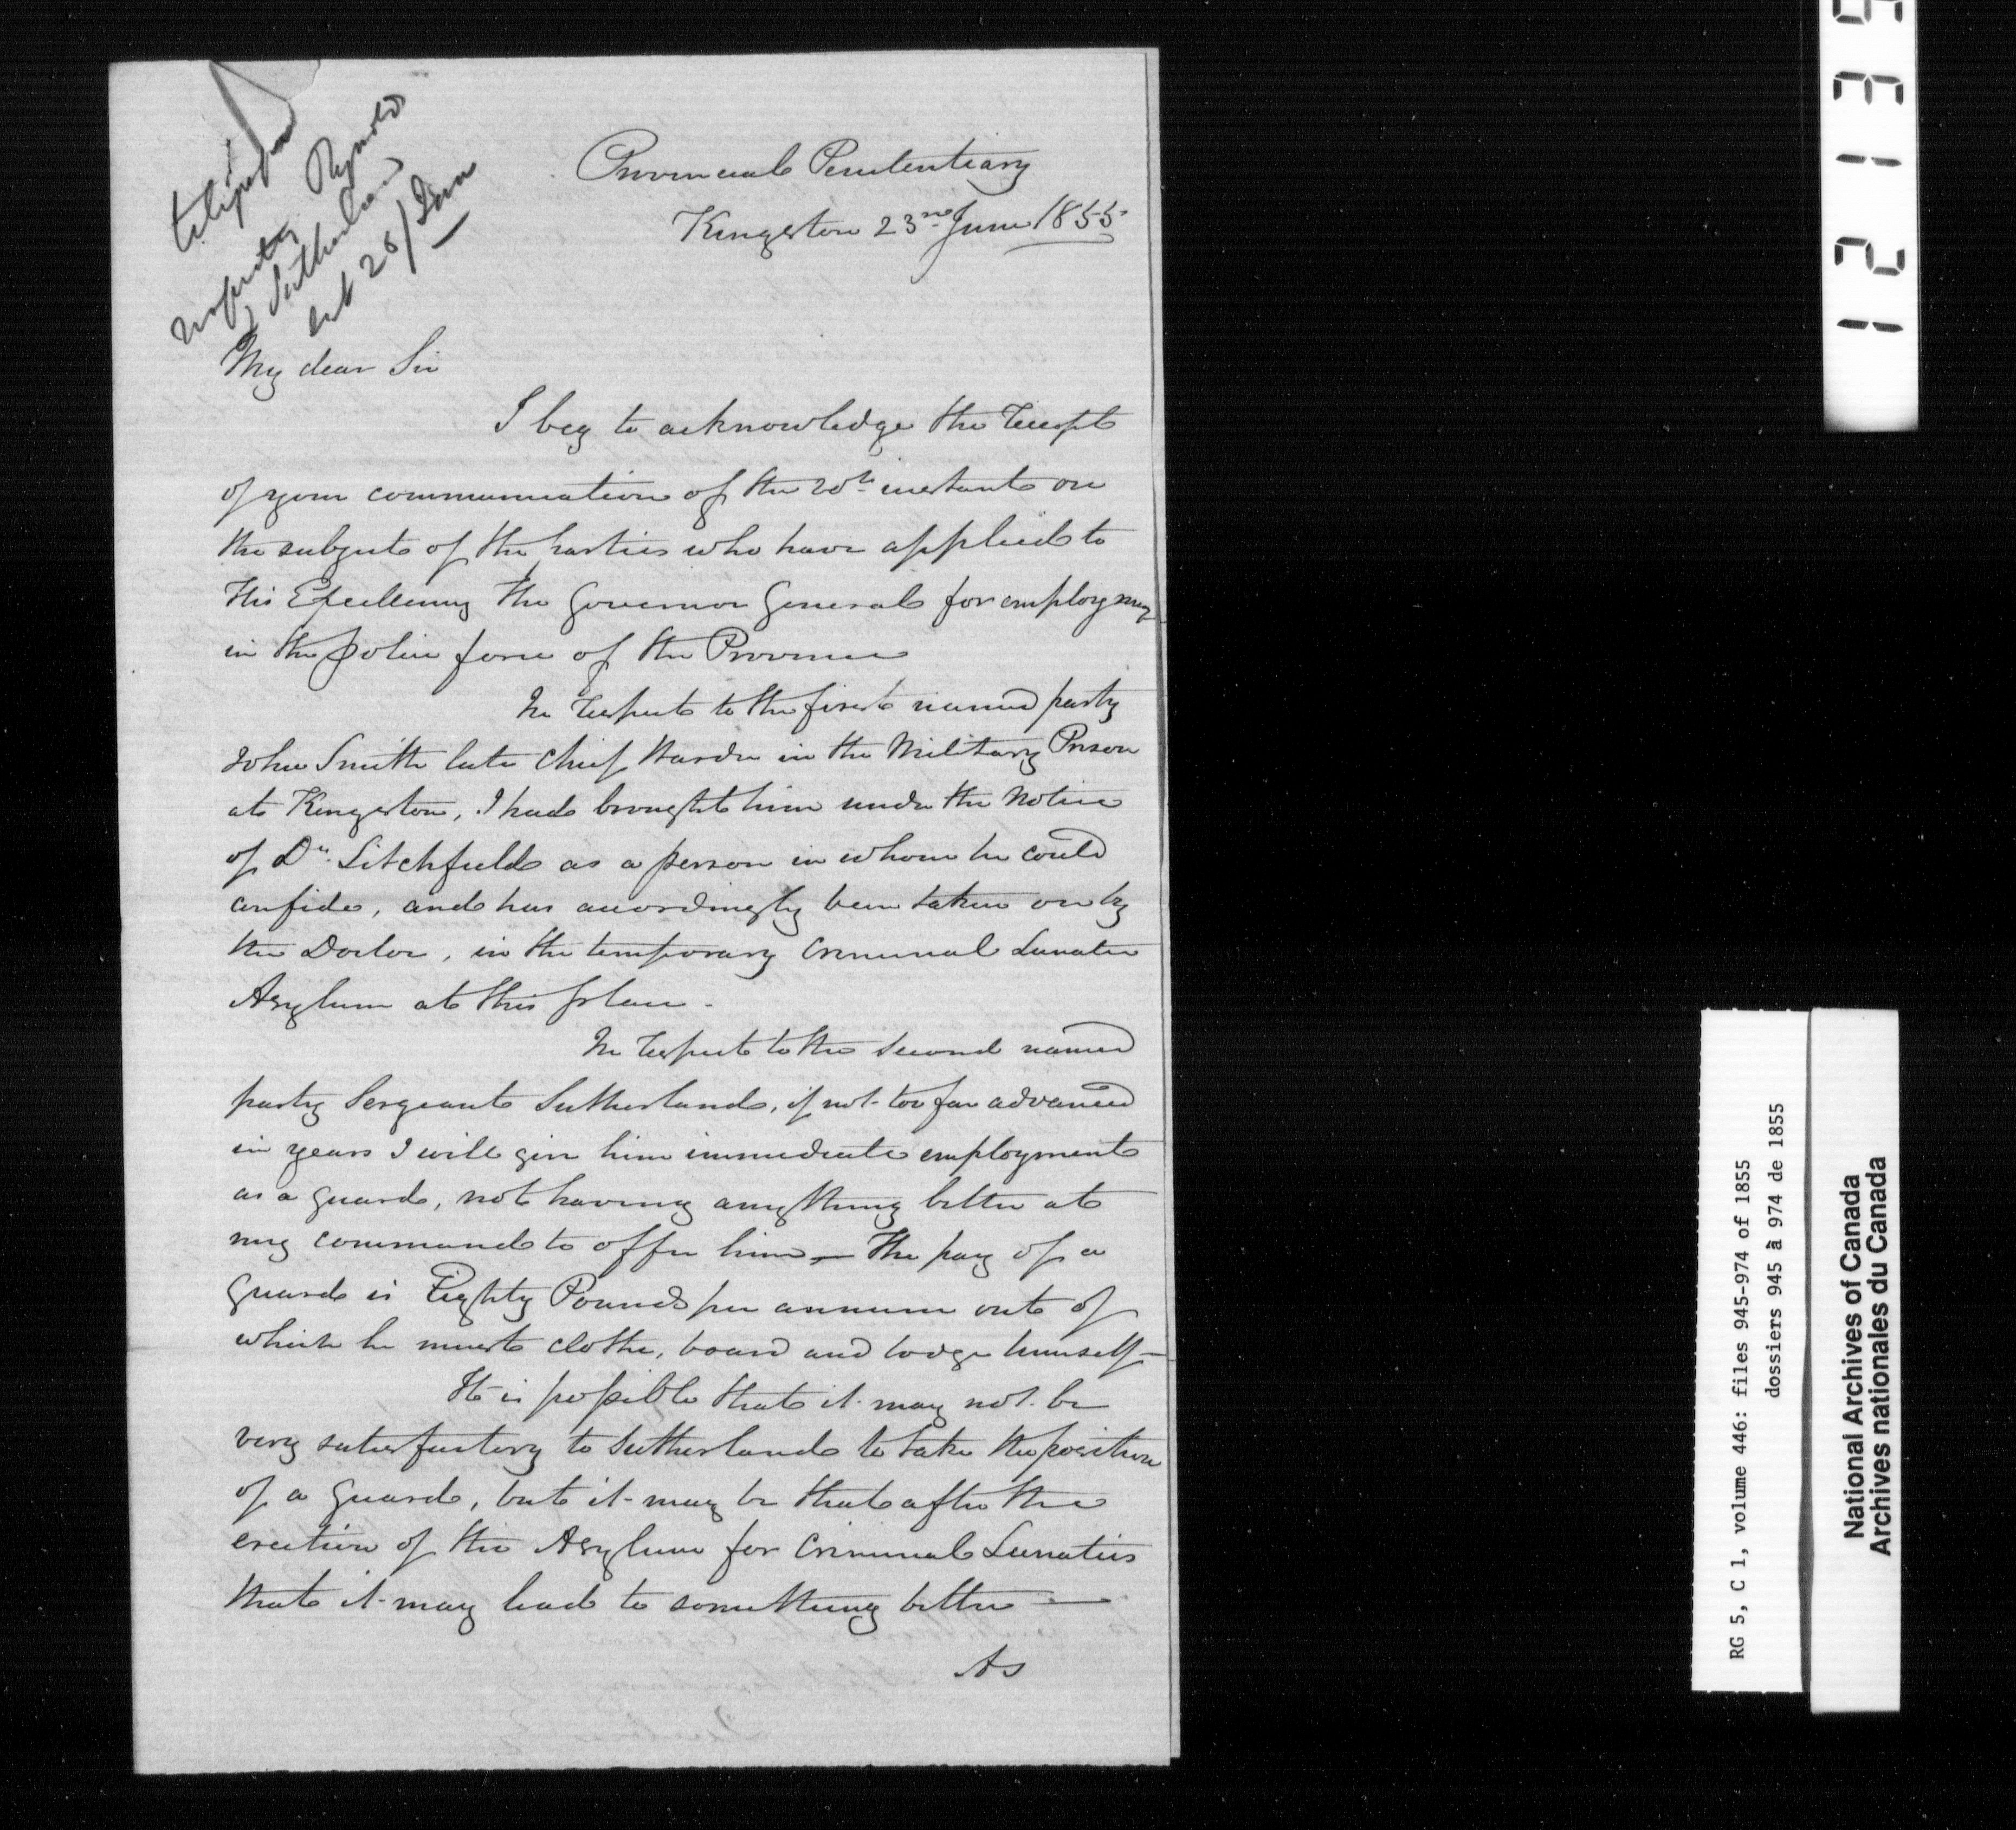 telegraph
respecting
Sutherland
26/June
Provincial Penitentiary
Kingston 23rd June 1855
My dear Sir
I beg to acknowledge the receipt
of your communication of the 20th instant on
the subject of the parties who have applied to
His Excellency the Governor General for employmt
in the Police force of the Province
In respect to the first named party
John Smith late chief Warder in the Military Prison
at Kingston, I had brought him under the notice
of Dr. Litchfield as a person in whom he could
confide, and has accordingly been taken on by
the Doctor, in the temporary Criminal Lunatic
Asylum at this place.
In respect to the second named
party Sergeant Sutherland, if not too far advanced
in years I will give him immediate employment
as a guard, not having anything better at
my command to offer him — The pay of a
Guard is Eighty Pounds per annum out of
which he must clothe, board and lodge himself —
It is possible that it may not be
very satisfactory to Sutherland to take the position
of a Guard, but it may be that after the
erection of the Asylum for Criminal Lunatics
that it may lead to something better —
As
RG 5, C 1, volume 446: files 945-974 of 1855
dossiers 945 à 974 de 1855
National Archives of Canada
Archives nationales du Canada